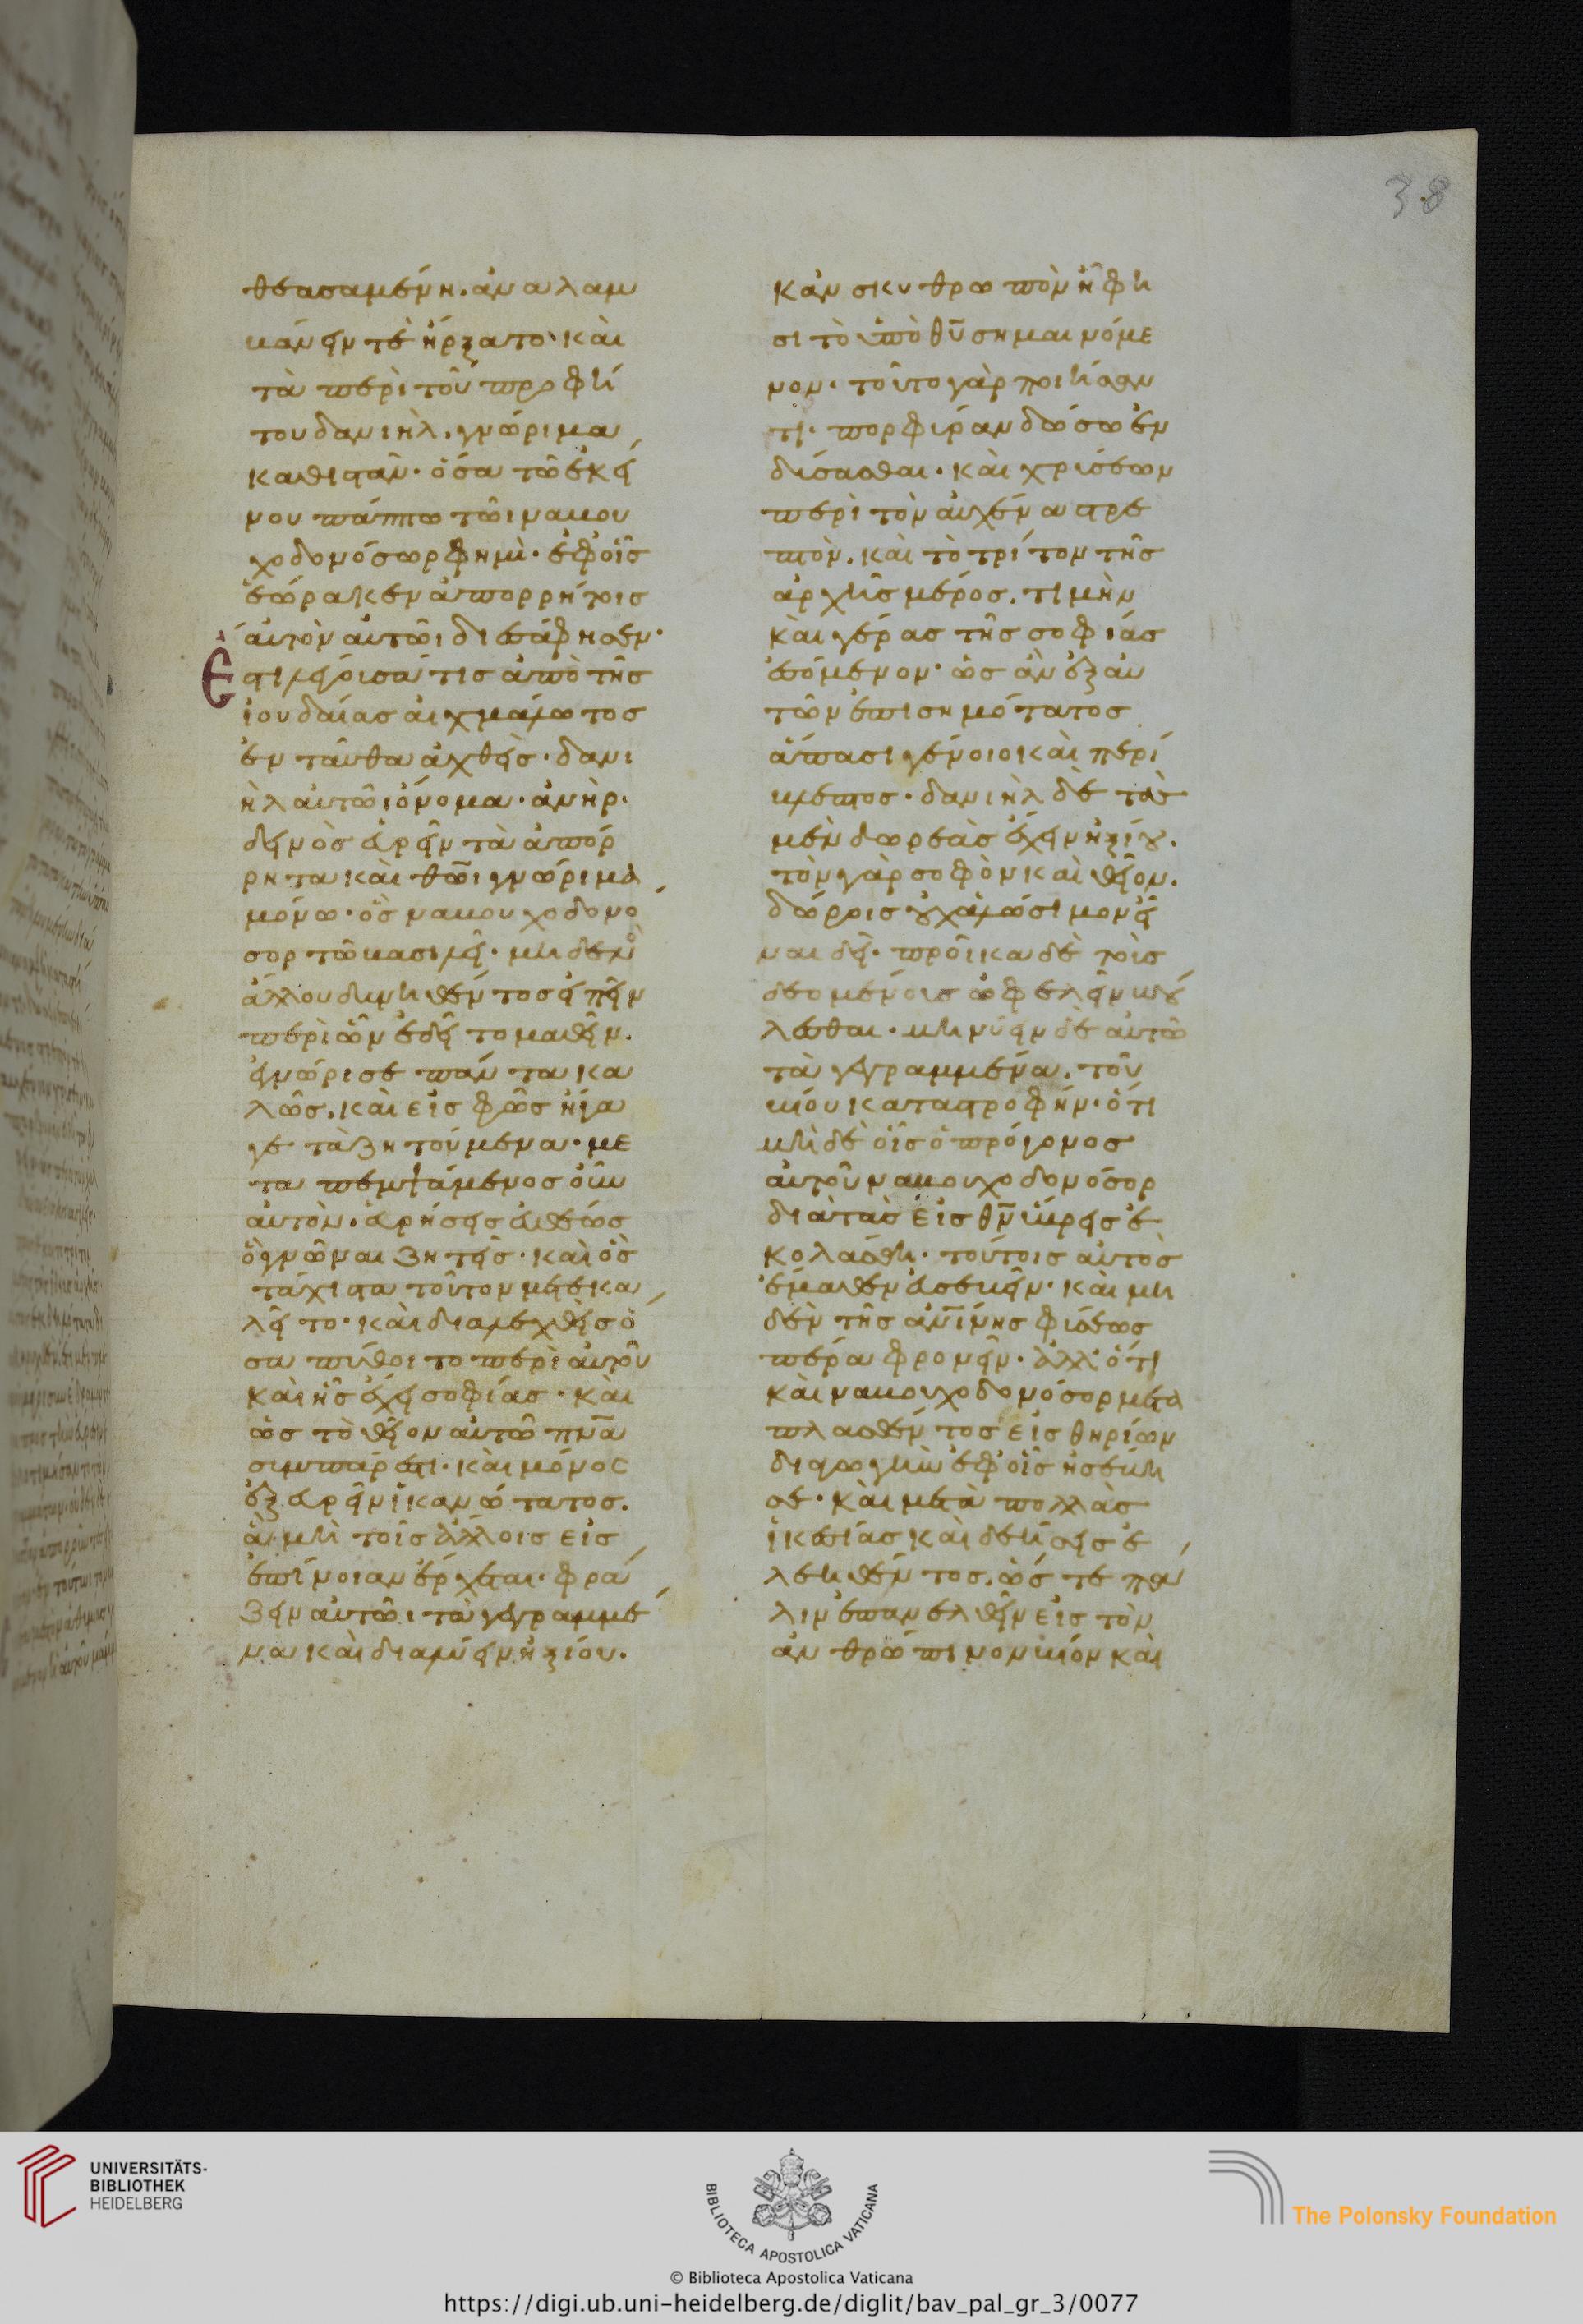 38
θεασαμένη. ἀναλαμ
βάνειν τὲ ἤρξατο· καὶ
τὰ περὶ τοῦ προφή
του δανιὴλ. γνώριμα
καθιστᾶν. ὅσα τῶ ἐκεί
νου πάππω τῶι ναβου
χοδονόσωρ φημὶ· ἐφ οἷς
ἑώρακεν ἀπορρήτοις
αὐτὸν αὐτῶι διεσάφησεν·
Ἔστι λέγουσά τις ἀπὸ τῆς
ἰουδαίας αἰχμάλωτος
ἐνταῦθα ἀχθεὶς. δανι
ὴλ αὐτῶι ὄνομα. ἀνὴρ.
δεινὸς εὑρεῖν τὰ ἀπόρ
ρητα καὶ θῶι γνώριμα
μόνω. ὃς ναβουχοδονο
σορ τῶ βασιλεῖ. μηδενὸ
ἄλλου δυνηθέντος εἰπεῖν
περὶ ὧν ἐδεῖτο μαθεῖν.
ἐγνώρισε πάντα κα
λῶς. καὶ εἰς φῶς ἤγα
γε τὰ ζητούμενα. με
ταπεμψάμενος οὖν
αὐτὸν. εὑρήσεις εὐθέως
ὃ γνῶναι ζητεῖς. καὶ ὃς
τάχιστα τοῦτον μετεκα
λεῖτο. καὶ διαλεχθεὶς ὅ
σα πύθοιτο περὶ αὐτοῦ
καὶ ἧς ἔχει σοφίας. καὶ
ὡς τὸ θεῖον αὐτῶ πνᾶ
συμπάρεστι. καὶ μόνος
ἐξευρεῖν ἱκανώτατος.
ἃ μὴ τοῖς ἄλλοις εἰς
ἐπίνοιαν ἔρχεται. φρά
ζειν αὐτῶι τὰ γεγραμμέ
να καὶ διαλύειν ἠξίου.
κἂν σκυθρωπὸν ἦ φη
σι τὸ ὑπὸ θῦ σημαινόμε
νον. τοῦτο γὰρ ποιήσαν
τι. πορφύραν δώσω ἐν
δύσασθαι. καὶ χρύσεον
περὶ τὸν αὐχένα στρε
πτὸν. καὶ τὸ τρίτον τῆς
ἀρχῆς μέρος. τιμὴν
καὶ γέρας τῆς σοφίας
ἑπόμενον. ὡς ἂν ἐξ αὐ
τῶν ἐπισημότατος
ἅπασι γένοιο καὶ περί
βλεπτος. δανιὴλ δὲ τὰς
μὲν δωρεὰς ἔχειν ἠξίου.
τὸν γὰρ σοφὸν καὶ θεῖον.
δώροις οὐχ ἁλώσιμον εἶ
ναι δεῖ. προῖκα δὲ τοὺς
δεομένους ὠφελεῖν βού
λεσθαι. μηνύειν δὲ αὐτῶ
τὰ γεγραμμένα. τοῦ
βίου καταστροφήν. ὅτι
μὴ δὲ οἷς ὁ πρόγονος
αὐτοῦ ναβουχοδονόσορ
διὰ τὰς εἰς θν ὕβρεις ἐ
κολάσθη. τούτοις αὐτὸς
ἔμαθεν εὐσεβεῖν. καὶ μη
δὲν τῆς ἀνίνης φύσεως
πέρα φρονεῖν. ἀλλ ὅτι
καὶ ναβουχοδονόσορ μετα
πλασθέντος εἰς θηρίων
διαγωγὴν ἐφ οἷς ἠσέβη
σε. καὶ μετὰ πολλὰς
ἱκεσίας καὶ δεήσεις ἐ
λεηθέντος. ὥς τε πά
λιν ἐπανελθεῖν εἰς τὸν
ἀνθρώπινον βίον καὶ
UNIVERSITÄTS-
BIBLIOTHEK
HEIDELBERG
BIBLIOTECA APOSTOLICA VATICANA
The Polonsky Foundation
© Biblioteca Apostolica Vaticana
https://digi.ub.uni-heidelberg.de/diglit/bav_pal_gr_3/0077